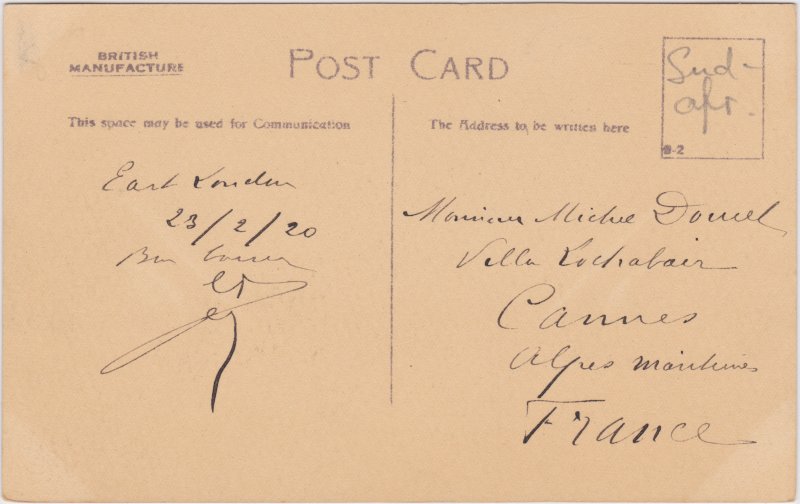 BRITISH
MANUFACTURE
POST CARD
Sud-
afr.
B-2
This space may be used for Communication
The Address to be written here
East London
23/2/20
Monsieur Michel
Villa
Cannes
Alpes maritimes
France